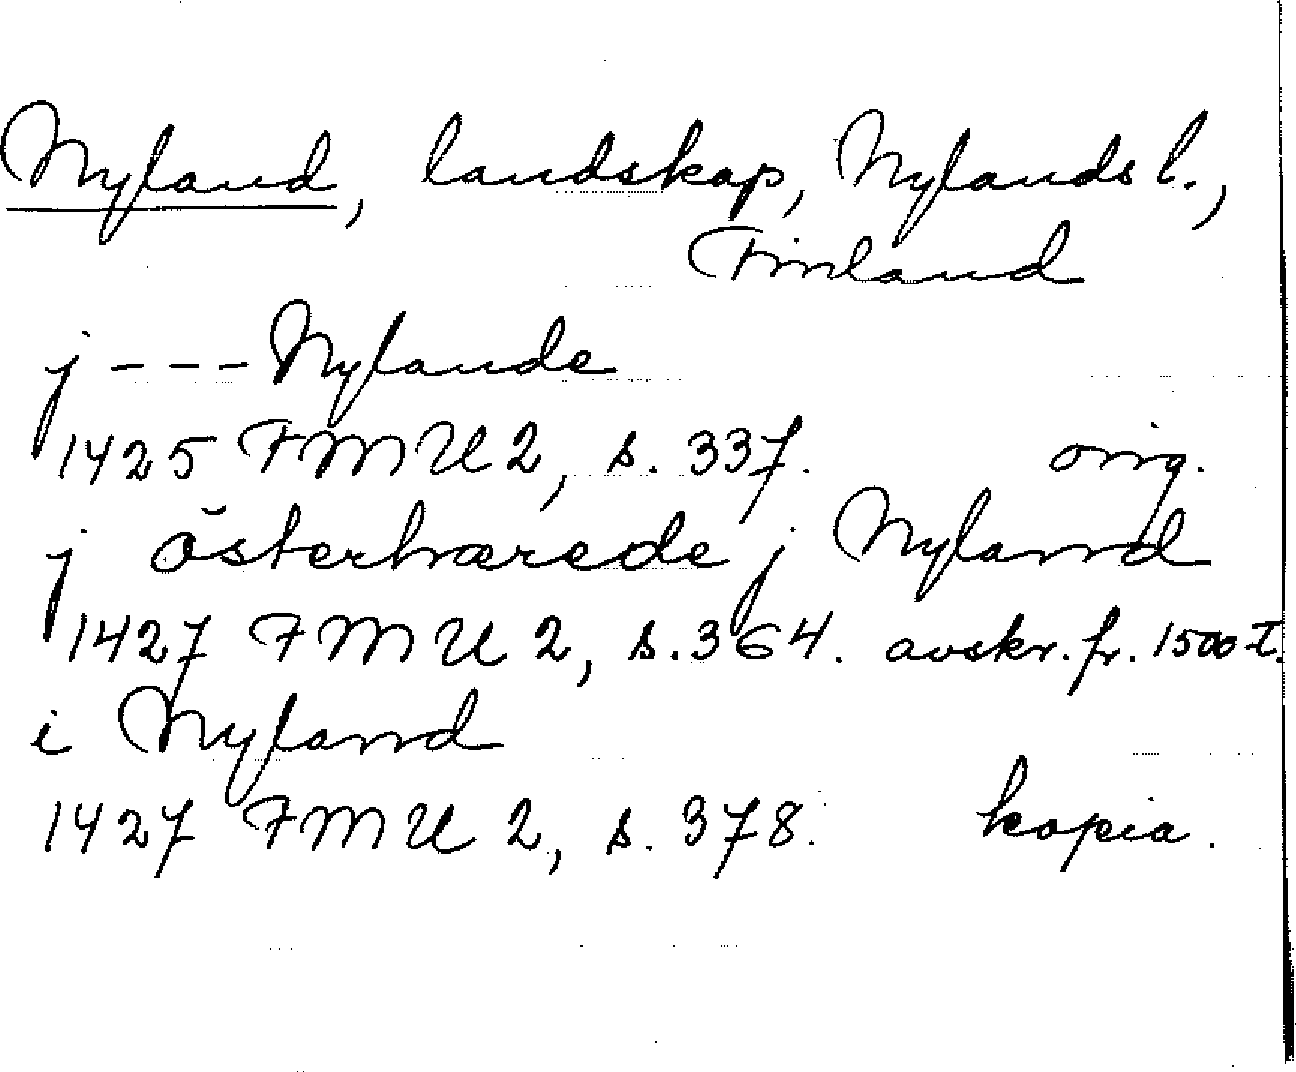 Nyland, landskap, Nylands l.,
Finland
j - - - Nylande
1425 FMU 2, s. 337. orig.
j österhærede j Nyland
1427 FMU 2, s. 364. avskr. fr. 1500-t.
i Nyland
1427 FMU 2, s. 378. kopia.